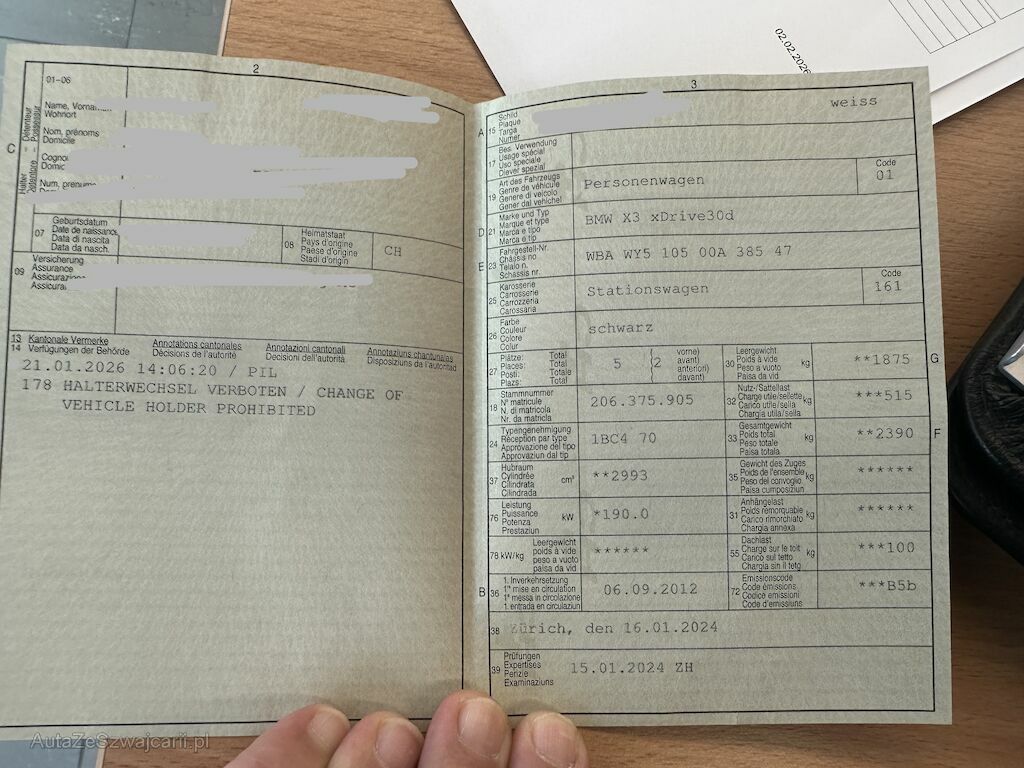 02.02.2026
2
01-06
Name, Vorna
Wohnort
Nom, prénoms
Domicile
Cogno
Domic
Num, prenums
C
Halter
Détenteur
07
Geburtsdatum
Date de naissance
Data di nascita
Data da nasch.
08
Heimatstaat
Pays d'origine
Paese d'origine
Stadi d'origin
CH
09
Versicherung
Assurance
Assicurazione
Assicura
13 Kantonale Vermerke Annotations cantonales Annotazioni cantonali Annotaziuns chantunalas
14 Verfügungen der Behörde Décisions de l'autorité Decisioni dell'autorità Disposiziuns da l'autoritad
21.01.2026 14:06:20 / PIL
178 HALTERWECHSEL VERBOTEN / CHANGE OF
VEHICLE HOLDER PROHIBITED
3
A 15
Schild
Plaque
Targa
Numer
weiss
17
Bes. Verwendung
Usage spécial
Uso speciale
Diever spezial
19
Art des Fahrzeugs
Genre de véhicule
Genere di veicolo
Gener dal vehichel
Personenwagen
Code
01
D 21
Marke und Typ
Marque et type
Marca e tipo
Marca e tip
BMW X3 xDrive30d
E 23
Fahrgestell-Nr.
Châssis no
Telaio n.
Schassis nr.
WBA WY5 105 00A 385 47
25
Karosserie
Carrosserie
Carrozzeria
Carossaria
Stationswagen
Code
161
26
Farbe
Couleur
Colore
Colur
schwarz
27
Plätze: Total
Places: Total
Posti: Totale
Plazs: Total
5 (2
vorne)
avant)
anteriori)
davant)
30
Leergewicht
Poids à vide
Peso a vuoto
Paisa da vid
kg
**1875
G
18
Stammnummer
N° matricule
N. di matricola
Nr. da matricla
206.375.905
32
Nutz-/Sattellast
Charge utile/sellette
Carico utile/sella
Chargia utila/sella
kg
***515
24
Typengenehmigung
Réception par type
Approvazione del tipo
Approvaziun dal tip
1BC4 70
33
Gesamtgewicht
Poids total
Peso totale
Paisa totala
kg
**2390
F
37
Hubraum
Cylindrée
Cilindrata
Cilindrada
cm³
**2993
35
Gewicht des Zuges
Poids de l'ensemble
Peso del convoglio
Paisa cumposiziun
kg
******
76
Leistung
Puissance
Potenza
Prestaziun
kW
*190.0
31
Anhängelast
Poids remorquable
Carico rimorchiato
Chargia annexa
kg
******
78 kW/kg
Leergewicht
poids à vide
peso a vuoto
paisa da vid
******
55
Dachlast
Charge sur le toit
Carico sul tetto
Chargia sin il tetg
kg
***100
B 36
1. Inverkehrsetzung
1re mise en circulation
1a messa in circolazione
1. entrada en circulaziun
06.09.2012
72
Emissionscode
Code émissions
Codice emissioni
Code d'emissiuns
***B5b
38
Zürich, den 16.01.2024
39
Prüfungen
Expertises
Perizie
Examinaziuns
15.01.2024 ZH
AutaZeSzwajcarii.pl